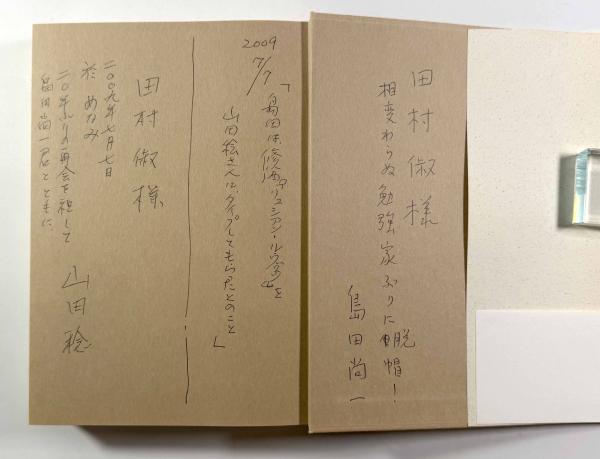 田村俶様
相変わらぬ勉強家ぶりに脱帽！
島田尚一
2009
7/7
「島田は、修論「リュシアン・ルーヴェン」を
山田稔さんに、タイプしてもらったとのこと」
田村俶様
二〇〇九年七月七日
於 めなみ
二〇年ぶりの再会を祝して
島田尚一君とともに
山田稔